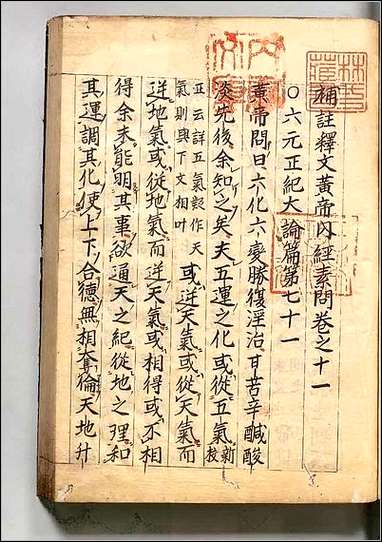 補註釋文黃帝內經素問卷之十一
○六元正紀大論篇第七十一
黃帝問曰六化六變勝復淫治甘苦辛鹹酸
淡先後余知之矣夫五運之化或從五氣新校
正云詳五氣疑作天
氣則與下文相叶
或逆天氣或從天氣而
逆地氣或從地氣而
逆天氣或相得或不相
得余未能明其事欲通天之紀從地之理和
其運調其化使上下合德無相奪倫天地升